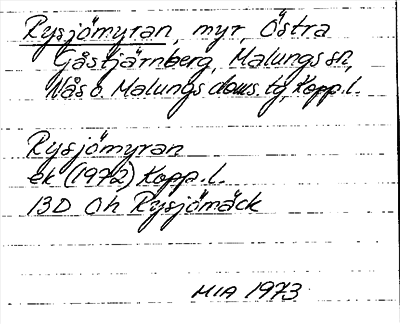 Rysjömyran, myr, Östra
Gåstjärnberg, Malungs sn,
Nås o. Malungs doms. tg, Kopp.l.
Rysjömyran
ek (1972) Kopp.l.
13D 0h Rysjömäck
MIA 1973